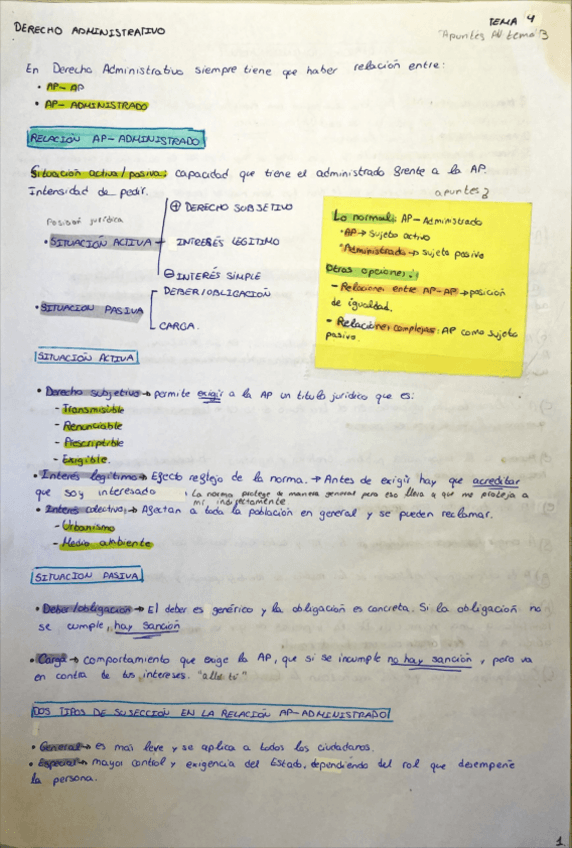 DERECHO ADMINISTRATIVO
TEMA 4
"Apuntes AV tema 3
En Derecho Administrativo siempre tiene que haber relación entre:
• AP-AP
• AP-ADMINISTRADO
RELACIÓN AP-ADMINISTRADO
Situación activa/pasiva: capacidad que tiene el administrado frente a la AP.
Intensidad de pedir.
apuntes 3
Posición jurídica
• SITUACIÓN ACTIVA
⊕ DERECHO SUBJETIVO
INTERÉS LEGÍTIMO
⊖ INTERÉS SIMPLE
• SITUACIÓN PASIVA
DEBER/OBLIGACIÓN
CARGA.
Lo normal: AP-Administrado
• AP → Sujeto activo
• Administrado → sujeto pasivo
Otras opciones:
- Relaciones entre AP-AP → posición
de igualdad.
- Relaciones complejas: AP como sujeto
pasivo.
SITUACIÓN ACTIVA
• Derecho subjetivo → permite exigir a la AP un título jurídico que es:
- Transmisible
- Renunciable
- Prescriptible
- Exigible.
• Interés legítimo → Efecto reflejo de la norma. → Antes de exigir hay que acreditar
que soy interesado
↳ La norma protege de manera general pero eso lleva a que me proteja a
mí indirectamente
• Interés colectivo → Afectan a toda la población en general y se pueden reclamar.
- Urbanismo
- Medio ambiente
SITUACIÓN PASIVA
• Deber/obligación → El deber es genérico y la obligación es concreta. Si la obligación no
se cumple, hay sanción
• Carga → comportamiento que exige la AP, que si se incumple no hay sanción, pero va
en contra de tus intereses. "allá tú"
DOS TIPOS DE SUJECCIÓN EN LA RELACIÓN AP-ADMINISTRADO
• General → es más leve y se aplica a todos los ciudadanos.
• Especial → mayor control y exigencia del Estado, dependiendo del rol que desempeñe
la persona.
1